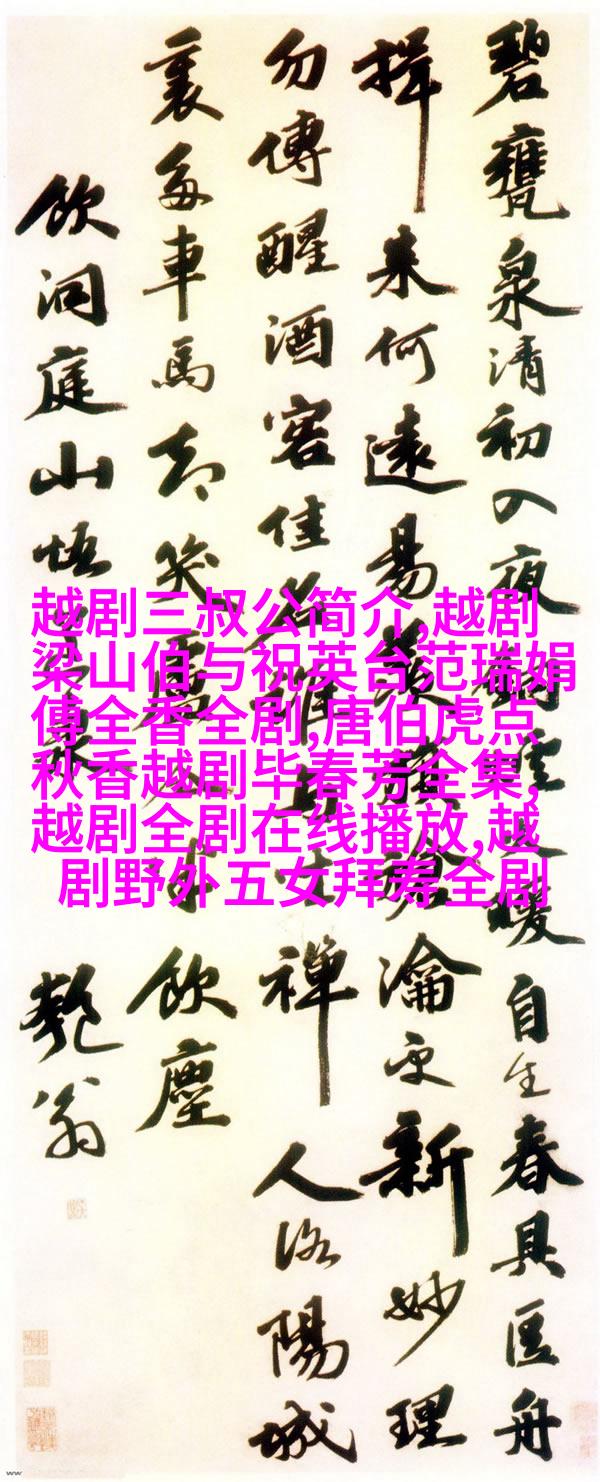 碧甕泉清初入夜煖自生春具區舟
楫來何遠昜羡瀹更新妙理
勿傳醒酒客佳名禪人洛陽城
裏多車馬却笑盧飲塵
飲洞庭山悟泉
匏翁
越剧三叔公简介,越剧
梁山伯与祝英台范瑞娟
傅全香全剧,唐伯虎点
秋香越剧毕春芳全集,
越剧全剧在线播放,越
剧野外五女拜寿全剧